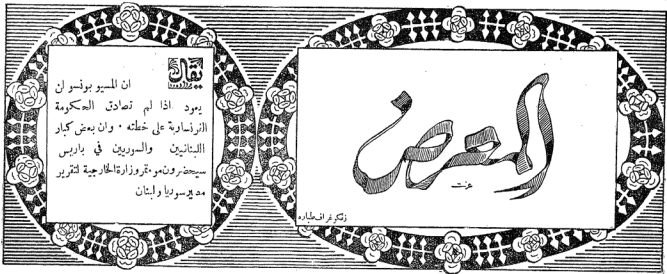 المعرض
عزت
زنكوغراف طباره
يقال
ان المسيو بونسو لن
يعود اذا لم تصادق الحكومة
الفرنساوية على خطته . وان بعض كبار
اللبنانيين والسوريين في باريس
سيحضرون مؤتمر وزارة الخارجية لتقرير
مصير سوريا ولبنان